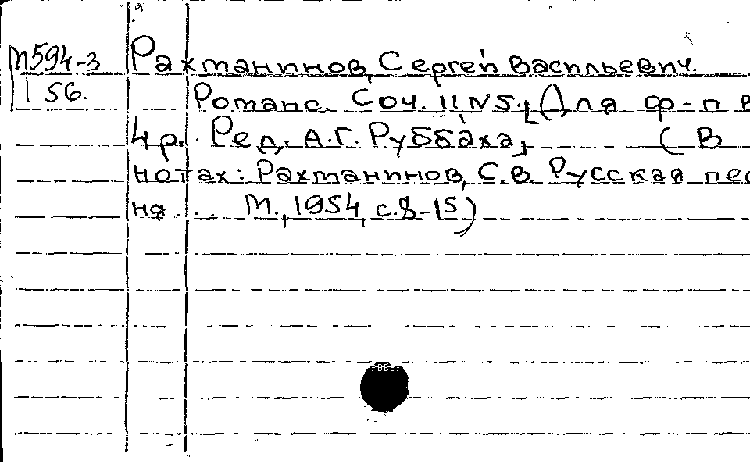 М594-3
156.
Рахманинов, Сергей Васильевич.
Романс. Соч. 11 N5. [Для ф-п в
4 р. Ред. А.Г. Руббаха] (В
нотах: Рахманинов, С.В. Русская пес
ня... М., 1954, с. 8-15)